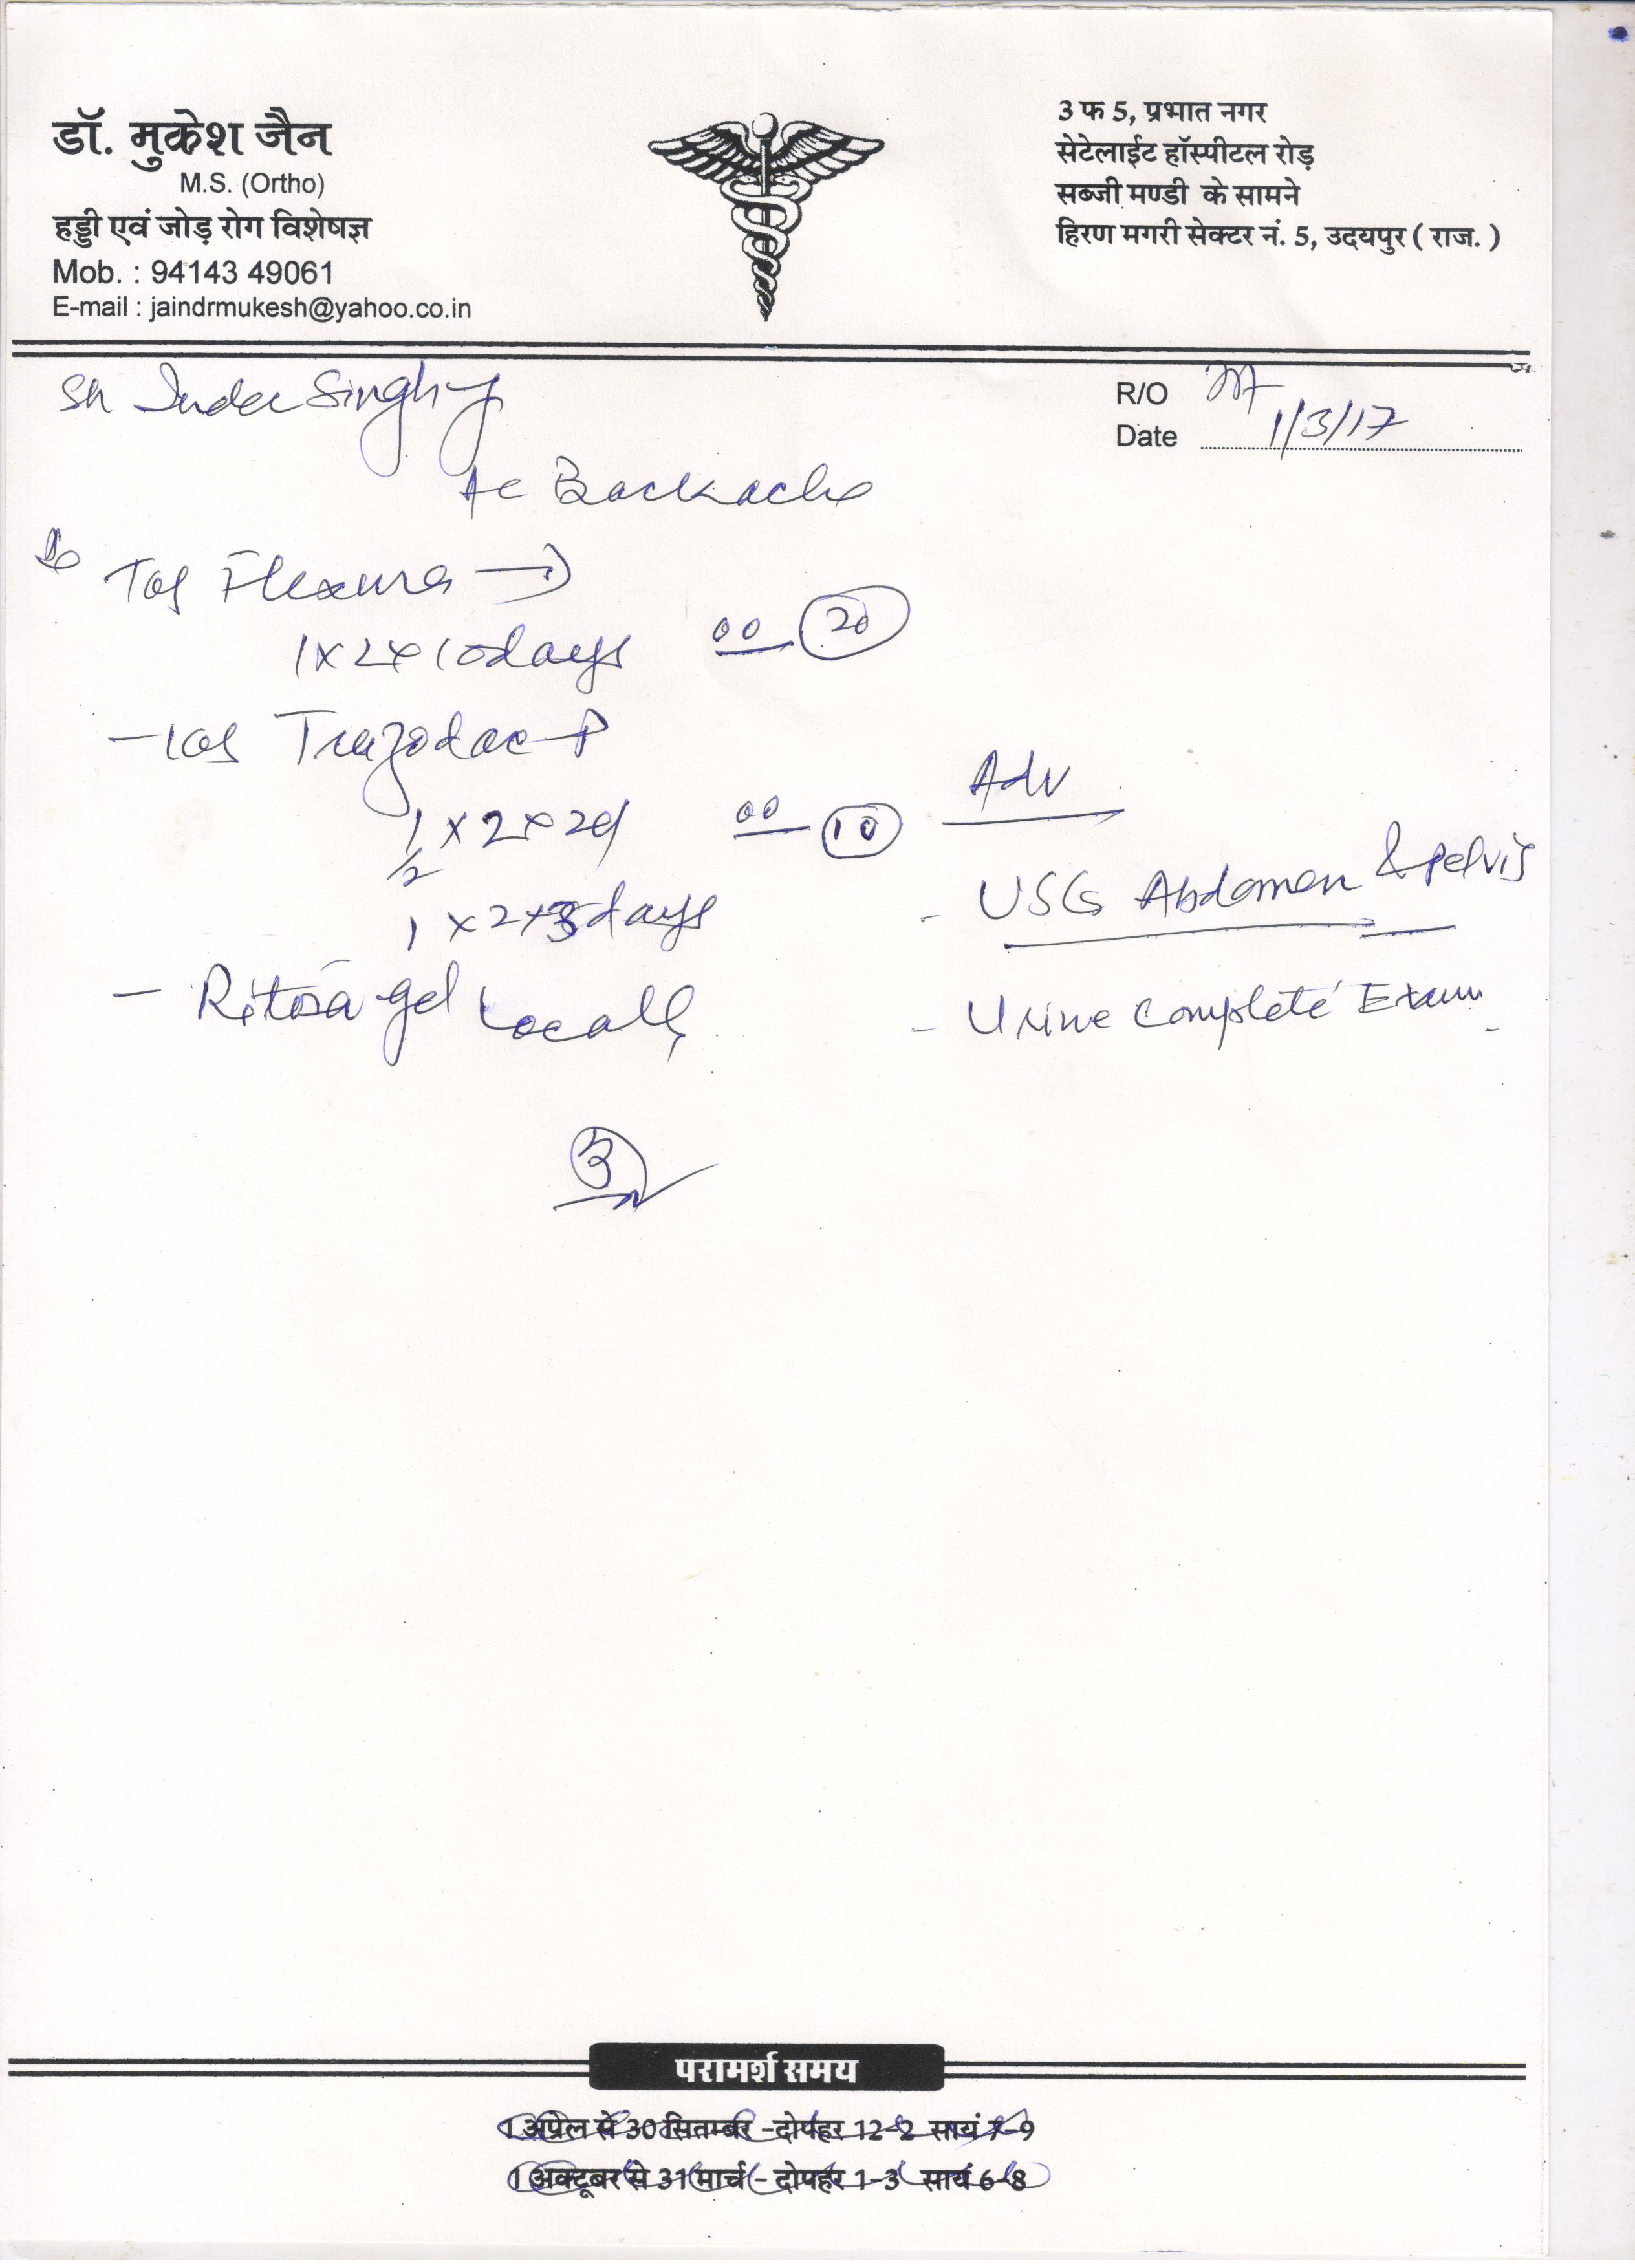 डॉ. मुकेश जैन
M.S. (Ortho)
हड्डी एवं जोड़ रोग विशेषज्ञ
Mob. : 94143 49061
E-mail : jaindrmukesh@yahoo.co.in
3 फ 5, प्रभात नगर
सेटेलाईट हॉस्पीटल रोड़
सब्जी मण्डी के सामने
हिरण मगरी सेक्टर नं. 5, उदयपुर ( राज. )
Sh Inder Singh
R/O
Date 1/3/17
Ac Backache
Tab Flexura
1 x 2 x 10 days 00 20
- Tab
1/2 x 2 x 2d 00 10
1 x 2 x 3 days
- gel Locally
Adv
- USG Abdomen & Pelvis
- Urine Complete Exam
परामर्श समय
1 अप्रेल से 30 सितम्बर - दोपहर 12-2 सायं 7-9
1 अक्टूबर से 31 मार्च - दोपहर 1-3 सायं 6-8